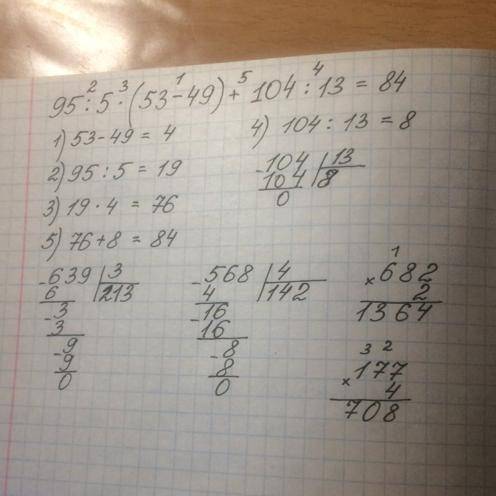 2 3 1 5 4
95 : 5 · (53 - 49) + 104 : 13 = 84
1) 53 - 49 = 4
2) 95 : 5 = 19
3) 19 · 4 = 76
5) 76 + 8 = 84
4) 104 : 13 = 8
- 104 | 13
104 | 8
0
- 639 | 3
6 | 213
- 3
3
- 9
9
0
- 568 | 4
4 | 142
- 16
16
- 8
8
0
1
× 682
2
1364
3 2
× 177
4
708